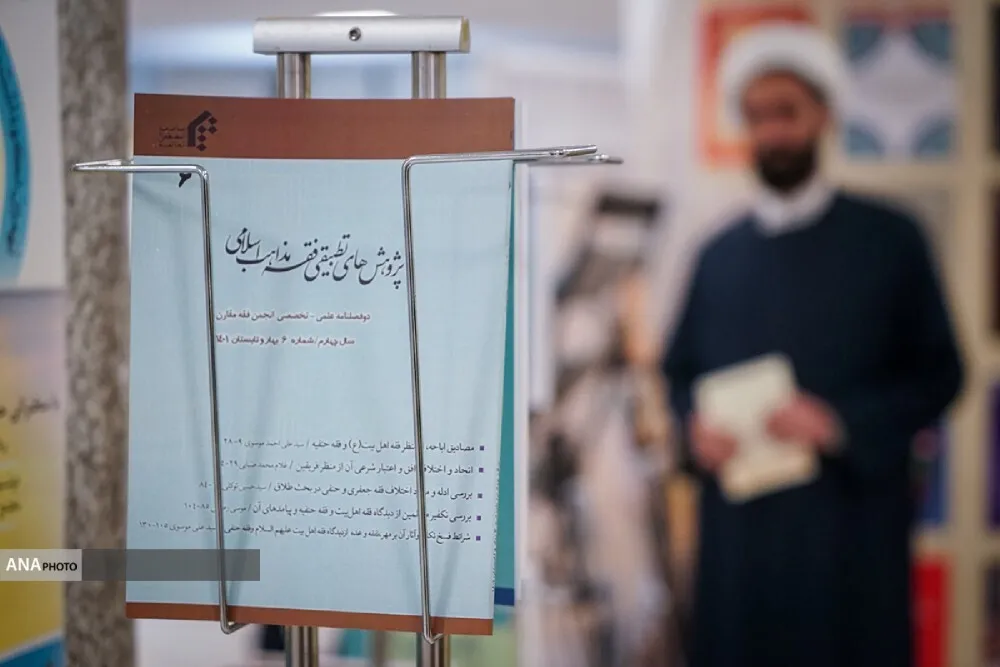 ۶
پژوهش های تطبیقی فقه مذاهب اسلامی
دوفصلنامه علمی - تخصصی انجمن فقه مقارن
سال چهارم/شماره ۶ بهار و تابستان ۱۴۰۱
مصادیق اباحه، منظر فقه اهل بیت(ع) و فقه حنفیه / سید علی احمد موسوی ۹-۲۸
اتحاد و اختلاف افق و اعتبار شرعی آن از منظر فریقین / غلام محمد ۲۹-
بررسی ادله و اختلاف فقه جعفری و حنفی در بحث طلاق / سید حسن
بررسی تکفیر از دیدگاه فقه اهل بیت و فقه حنفیه و پیامدهای آن / موسی ۸۵-۱۰۴
شرائط فسخ وآثار آن بر مهر،نفقه و عده از دیدگاه فقه اهل بیت علیهم السلام وفقه حنفی علی موسوی ۱۰۵-۱۳۰
ANA PHOTO